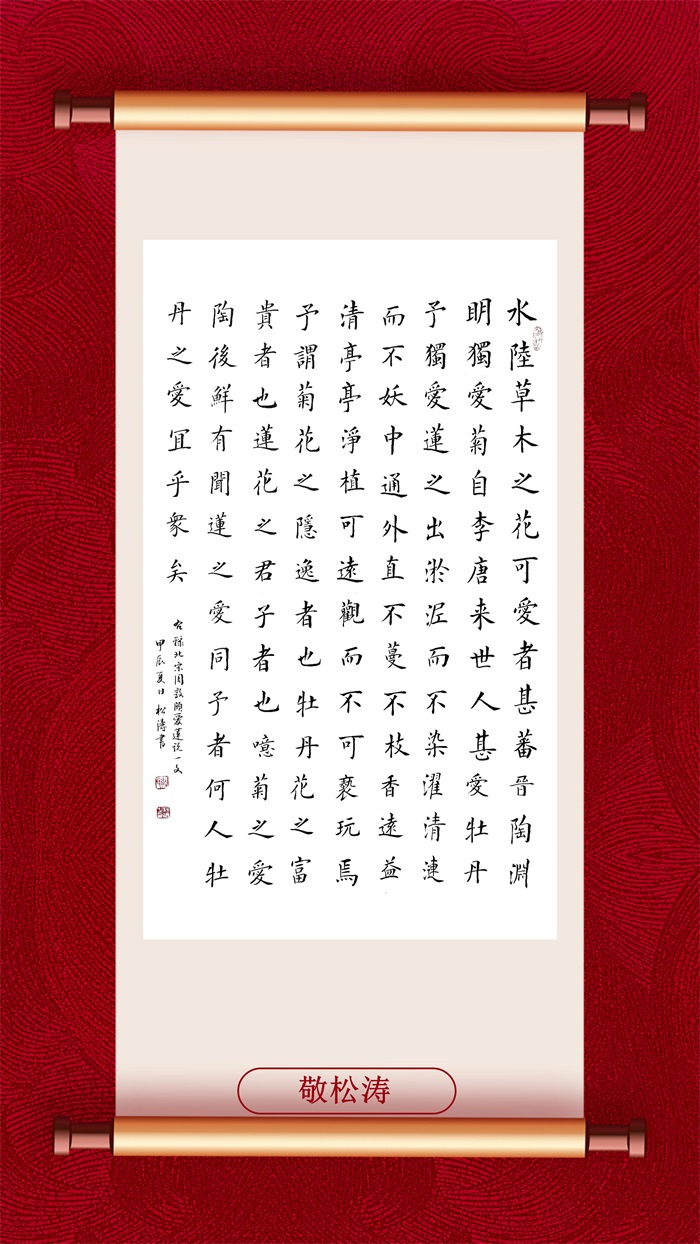 水陸草木之花可愛者甚蕃晉陶淵
明獨愛菊自李唐来世人甚愛牡丹
予獨愛蓮之出淤泥而不染濯清漣
而不妖中通外直不蔓不枝香遠益
清亭亭淨植可遠觀而不可褻玩焉
予謂菊花之隱逸者也牡丹花之富
貴者也蓮花之君子者也噫菊之愛
陶後鮮有聞蓮之愛同予者何人牡
丹之愛宜乎衆矣
右録北宋周敦頤愛蓮说一文
甲辰夏日 松濤書
敬松涛